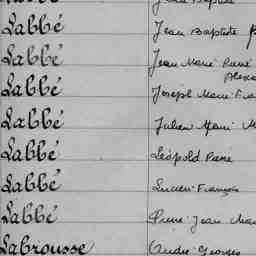 Labbé Jean Baptiste
Labbé Jean Marie Pierre
Labbé Joseph Marie Fra
Labbé Julien Marie M
Labbé Léopold Pierre
Labbé Lucien François
Labbé Pierre Jean Mar
Labrousse André Georges